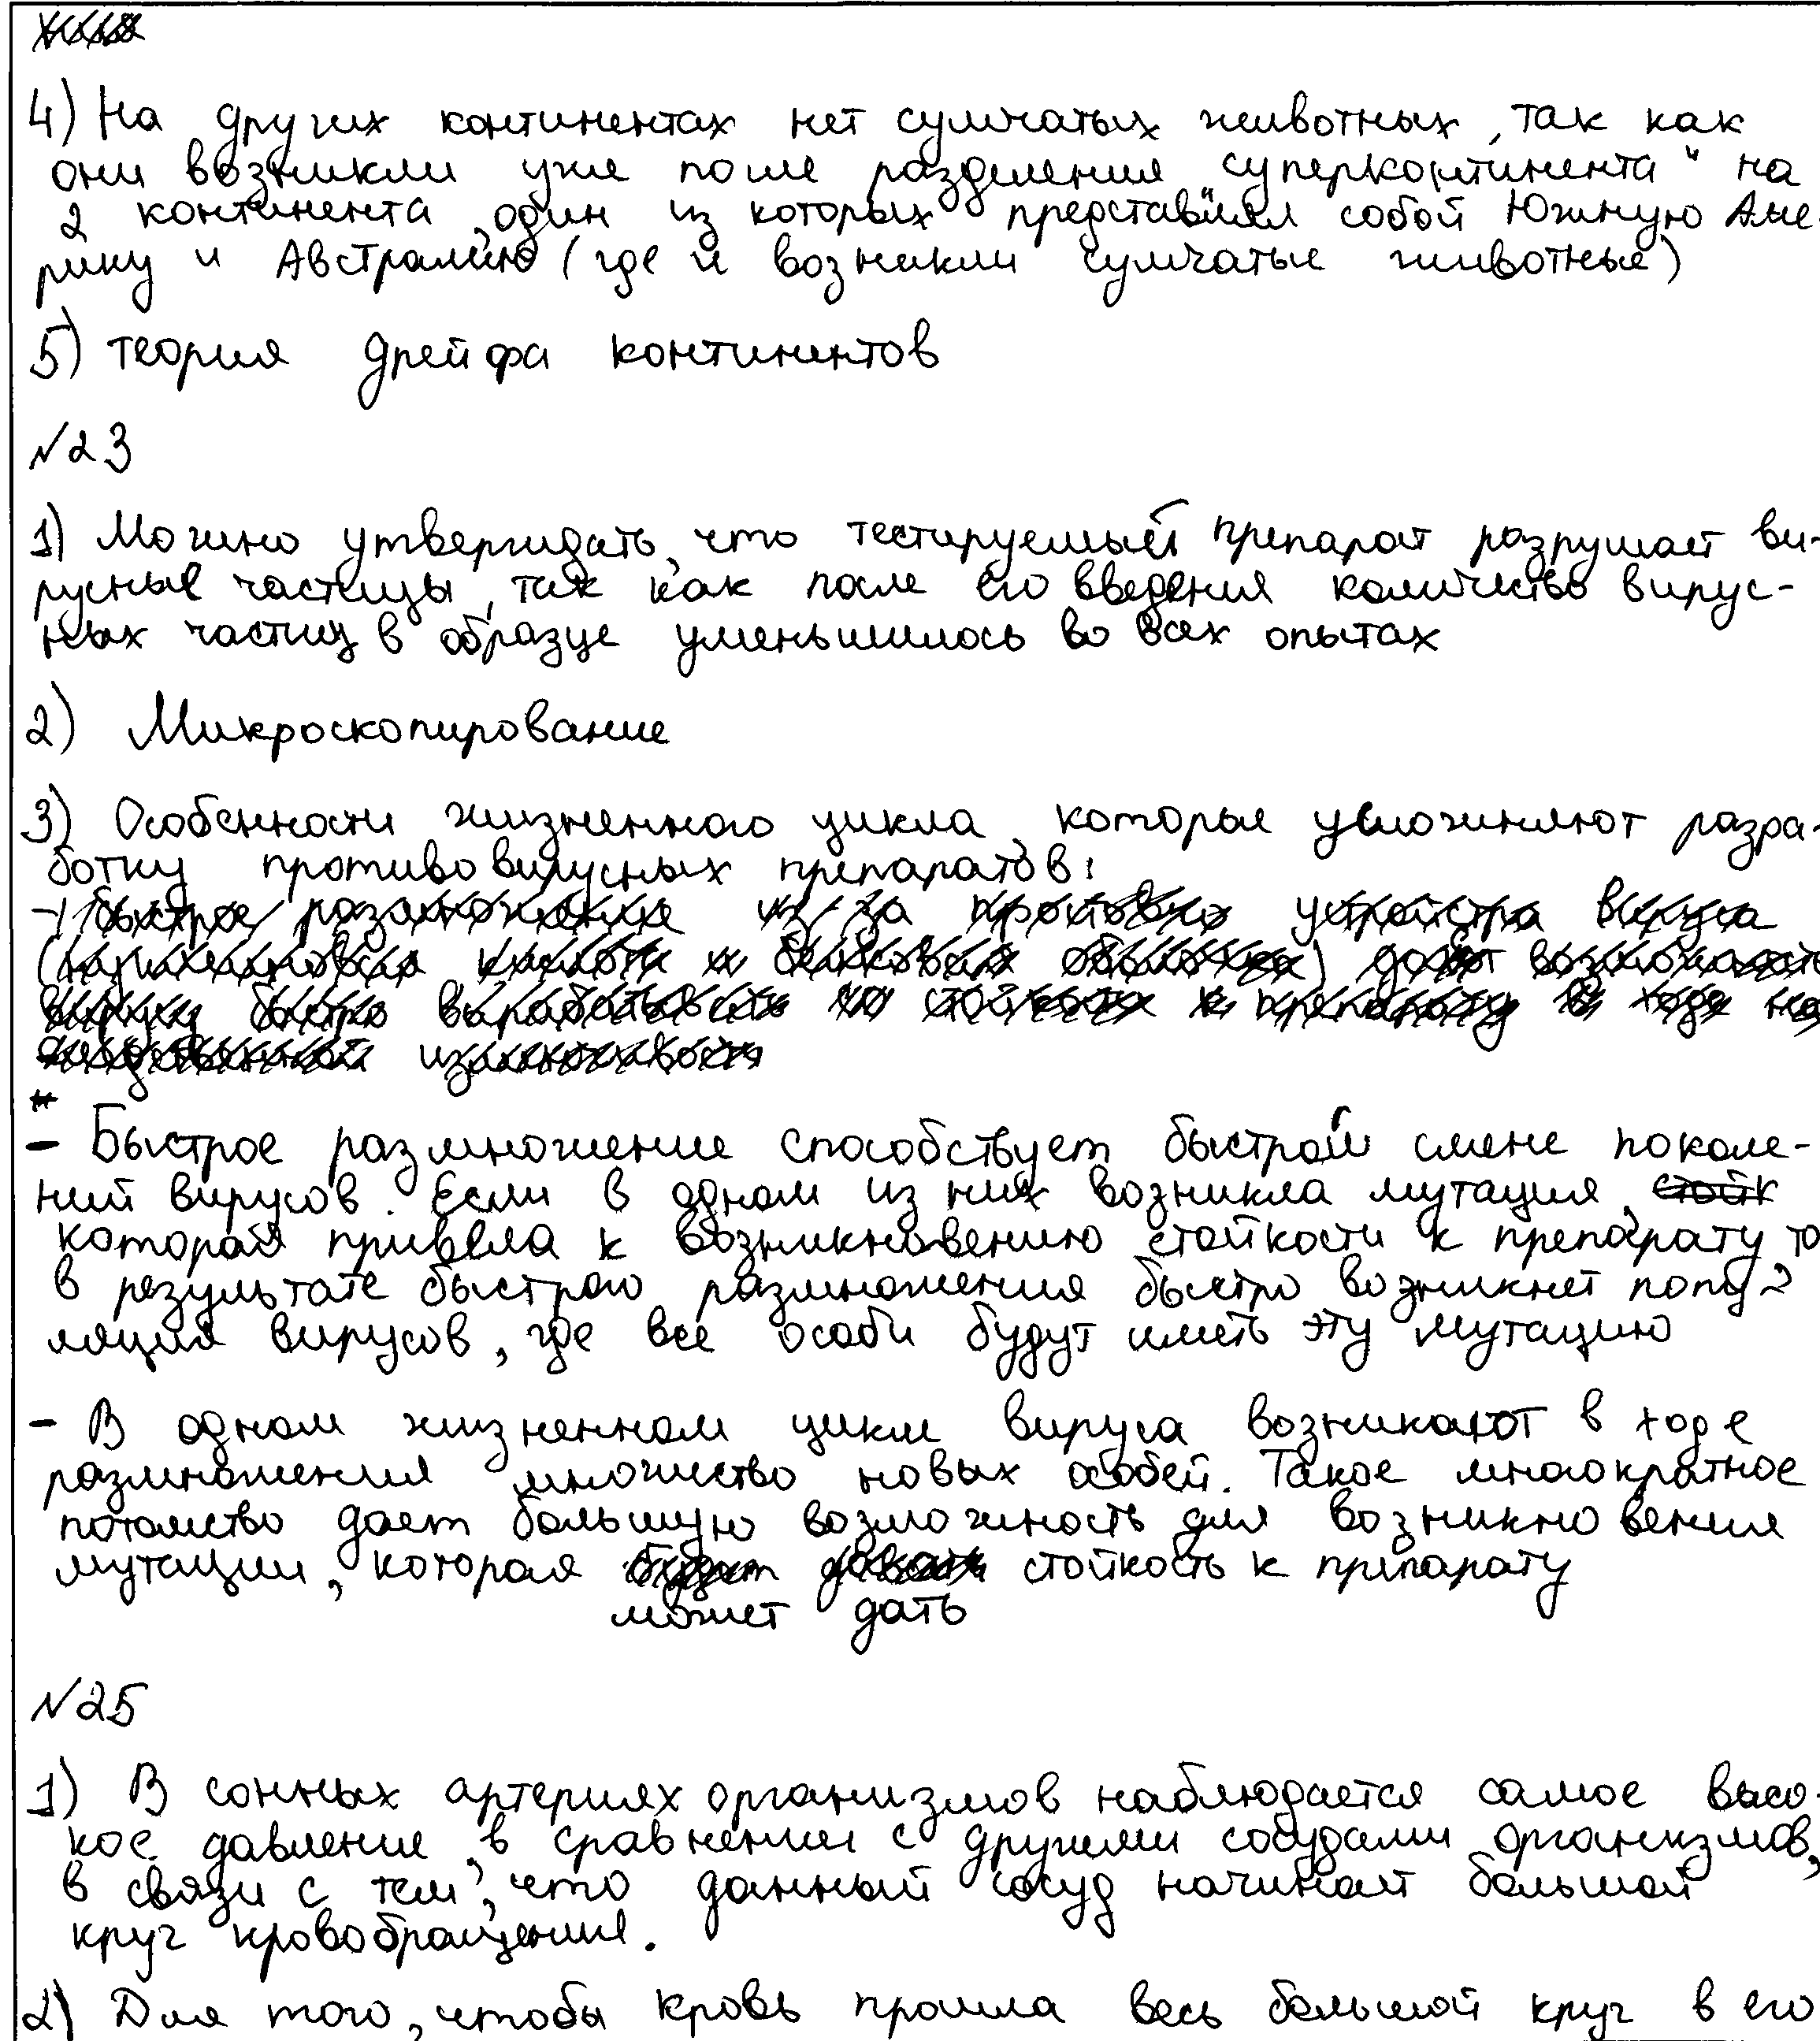 4) На других континентах нет сумчатых животных, так как
они возникли уже после разделения суперконтинента на
2 континента, один из которых представлял собой Южную Аме-
рику и Австралию (где и возникли сумчатые животные)
5) теория дрейфа континентов
№23
1) Можно утверждать, что тестируемый препарат разрушает ви-
русные частицы, так как после его введения количество вирус-
ных частиц в образце уменьшилось во всех опытах
2) Микроскопирование
3) Особенности жизненного цикла, которые усложняют разра-
ботку противовирусных препаратов:
- Быстрое размножение способствует быстрой смене поколе-
ний вирусов. Если в одном из них возникла мутация, стойк
которая привела к возникновению стойкости к препарату то
в результате быстрого размножения быстро возникнет попу-
ляция вирусов, где все особи будут иметь эту мутацию
- В одном жизненном цикле вируса возникают в ходе
размножения множество новых особей. Такое многократное
потомство дает большую возможность для возникновения
мутации, которая стойкость к препарату
может дать
№25
1) В сонных артериях организмов наблюдается самое высо-
кое давление, в сравнении с другими сосудами организмов,
в связи с тем, что данный сосуд начинает большой
круг кровобращения.
2) Для того, чтобы кровь прошла весь большой круг в его